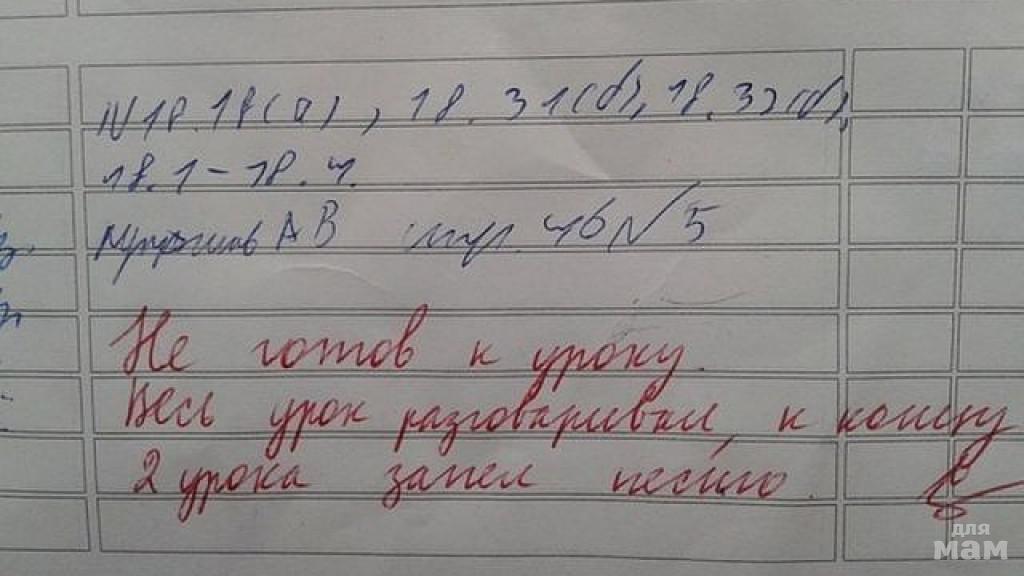 N18.18(а), 18.31(б), 18.32(б),
18.1-18.4.
АВ стр. 46 N5
Не готов к уроку.
Весь урок разговаривал, к концу
2 урока запел песню.
для
мам